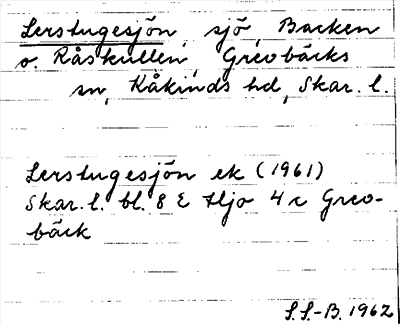 Lerstugesjön, sjö, Backen
o. Råskullen, Grevbäcks
sn, Kåkinds hd, Skar. l.
Lerstugesjön ek (1961)
Skar. l. bl. 8 E Hjo 4 c Grev-
bäck
S.S.-B. 1962